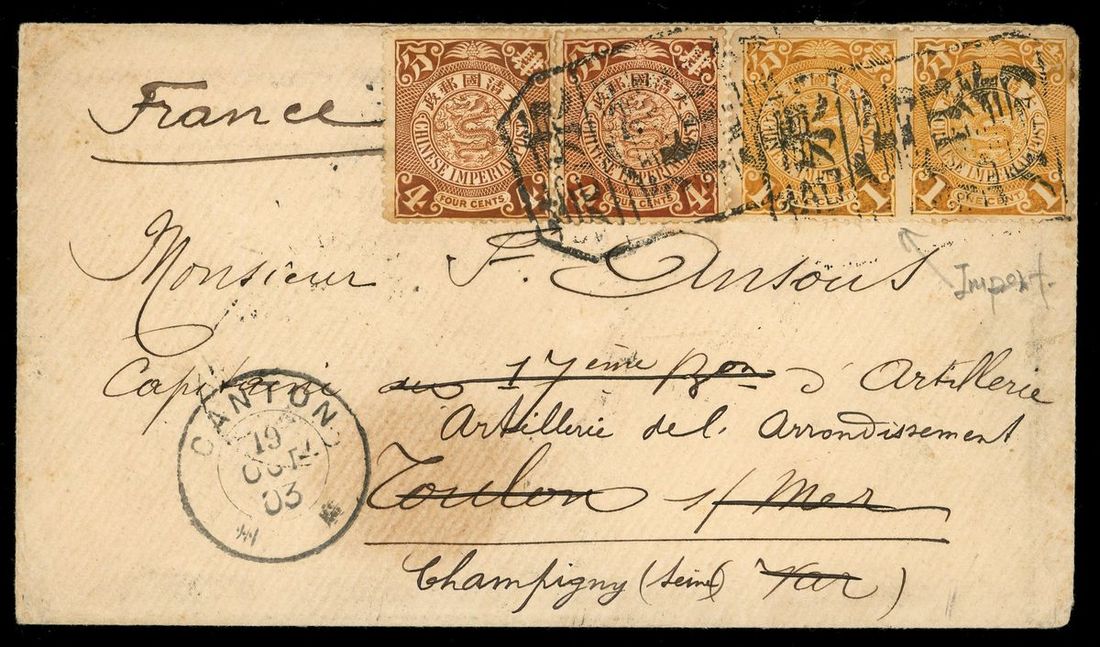 France
大清國郵政
CHINESE IMPERIAL POST
4 4
FOUR CENTS
大清國郵政
CHINESE IMPERIAL POST
4 4
FOUR CENTS
CHINESE IMPERIAL POST
1 1
CENT
CHINESE IMPERIAL POST
1 1
ONE CENT
Monsieur F. Ansous
Imperf.
Capitaine au 17ème Bon d'Artillerie
Artillerie de l'Arrondissement
Toulon s/ Mer
Champigny (Seine) Var)
CANTON
19
OCT
03
州